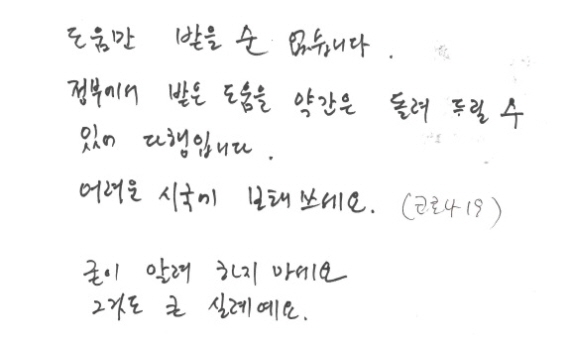 도움만 받을 순 없습니다.
정부에서 받은 도움을 약간은 돌려 드릴 수
있어 다행입니다.
어려운 시국에 보태 쓰세요. (코로나19)
굳이 알려 하지 마세요
그것도 큰 실례예요.